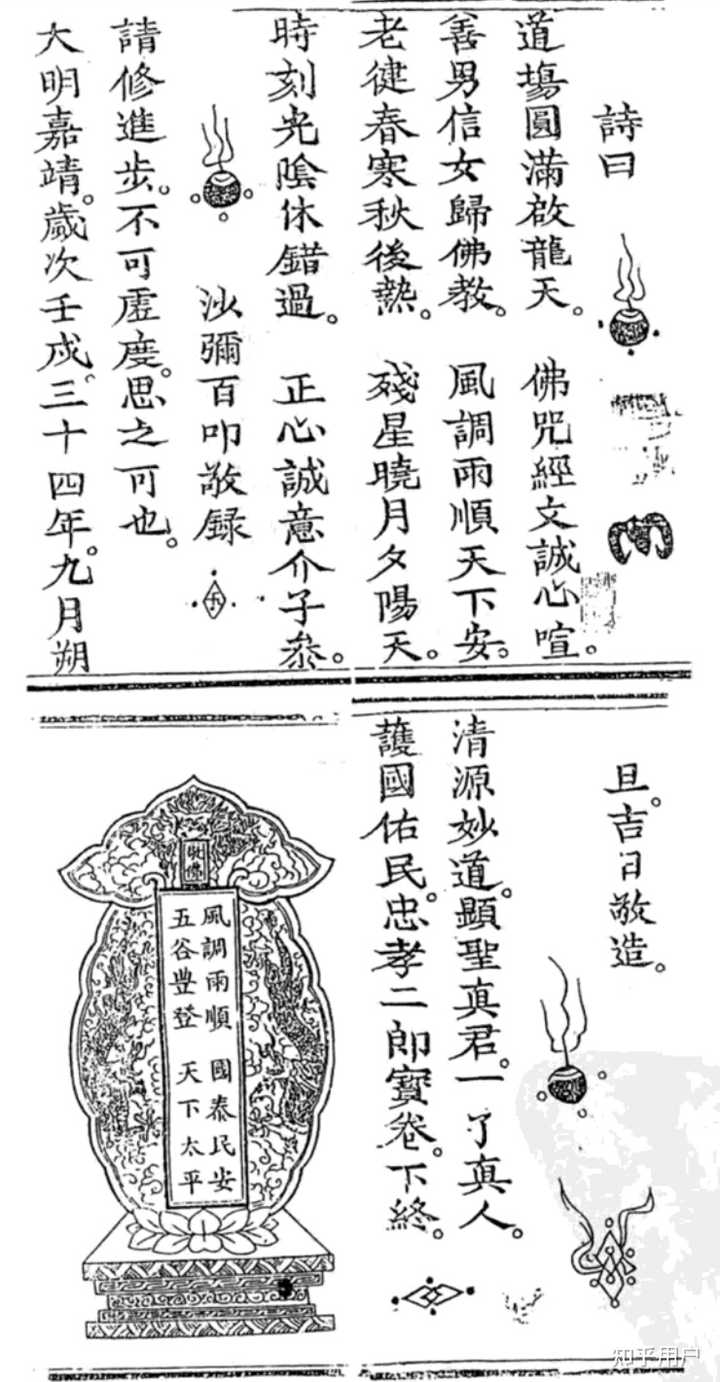 詩曰
道塲圓滿啟龍天。 佛咒經文誠心喧。
善男信女歸佛教。 風調雨順天下安。
老健春寒秋後熱。 殘星曉月夕陽天。
時刻光陰休錯過。 正心誠意介子叅。
沙彌百叩敬録
請修進步。不可虛度。思之可也。
大明嘉靖。歲次壬戌。三十四年。九月朔
旦。吉日敬造。
清源妙道。顯聖真君。一了真人。
護國佑民。忠孝二郎寶卷。下終。
風調雨順 國泰民安
五谷豊登 天下太平
知乎用户